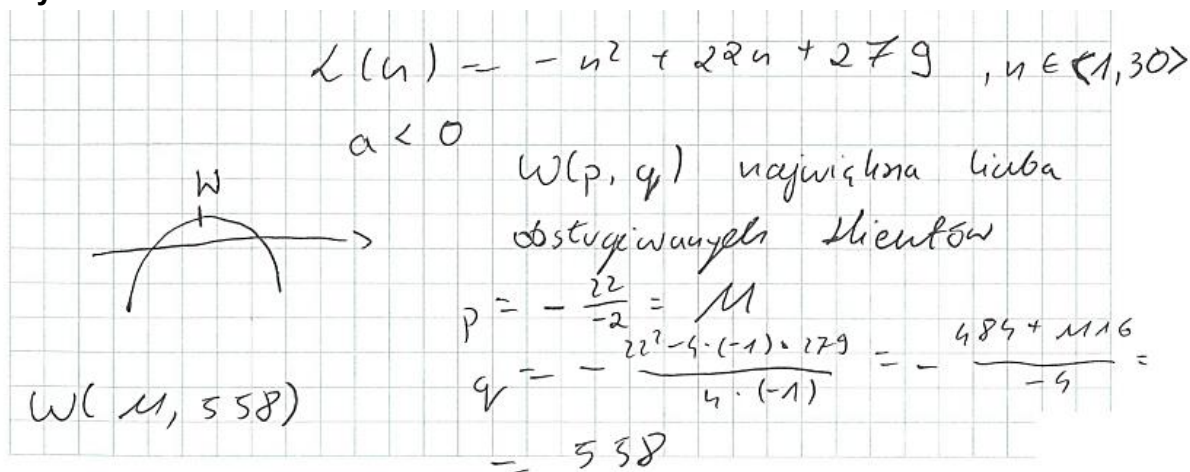 L(n) = - n² + 22n + 279 , n ∈ <1,30>
a < 0
W
W(p, q) największa liczba
obsługiwanych klientów
p = - 22/-2 = 11
q = - 22²-4·(-1)·279/4·(-1) = - 484+1116/-4 =
= 558
W( 11, 558)